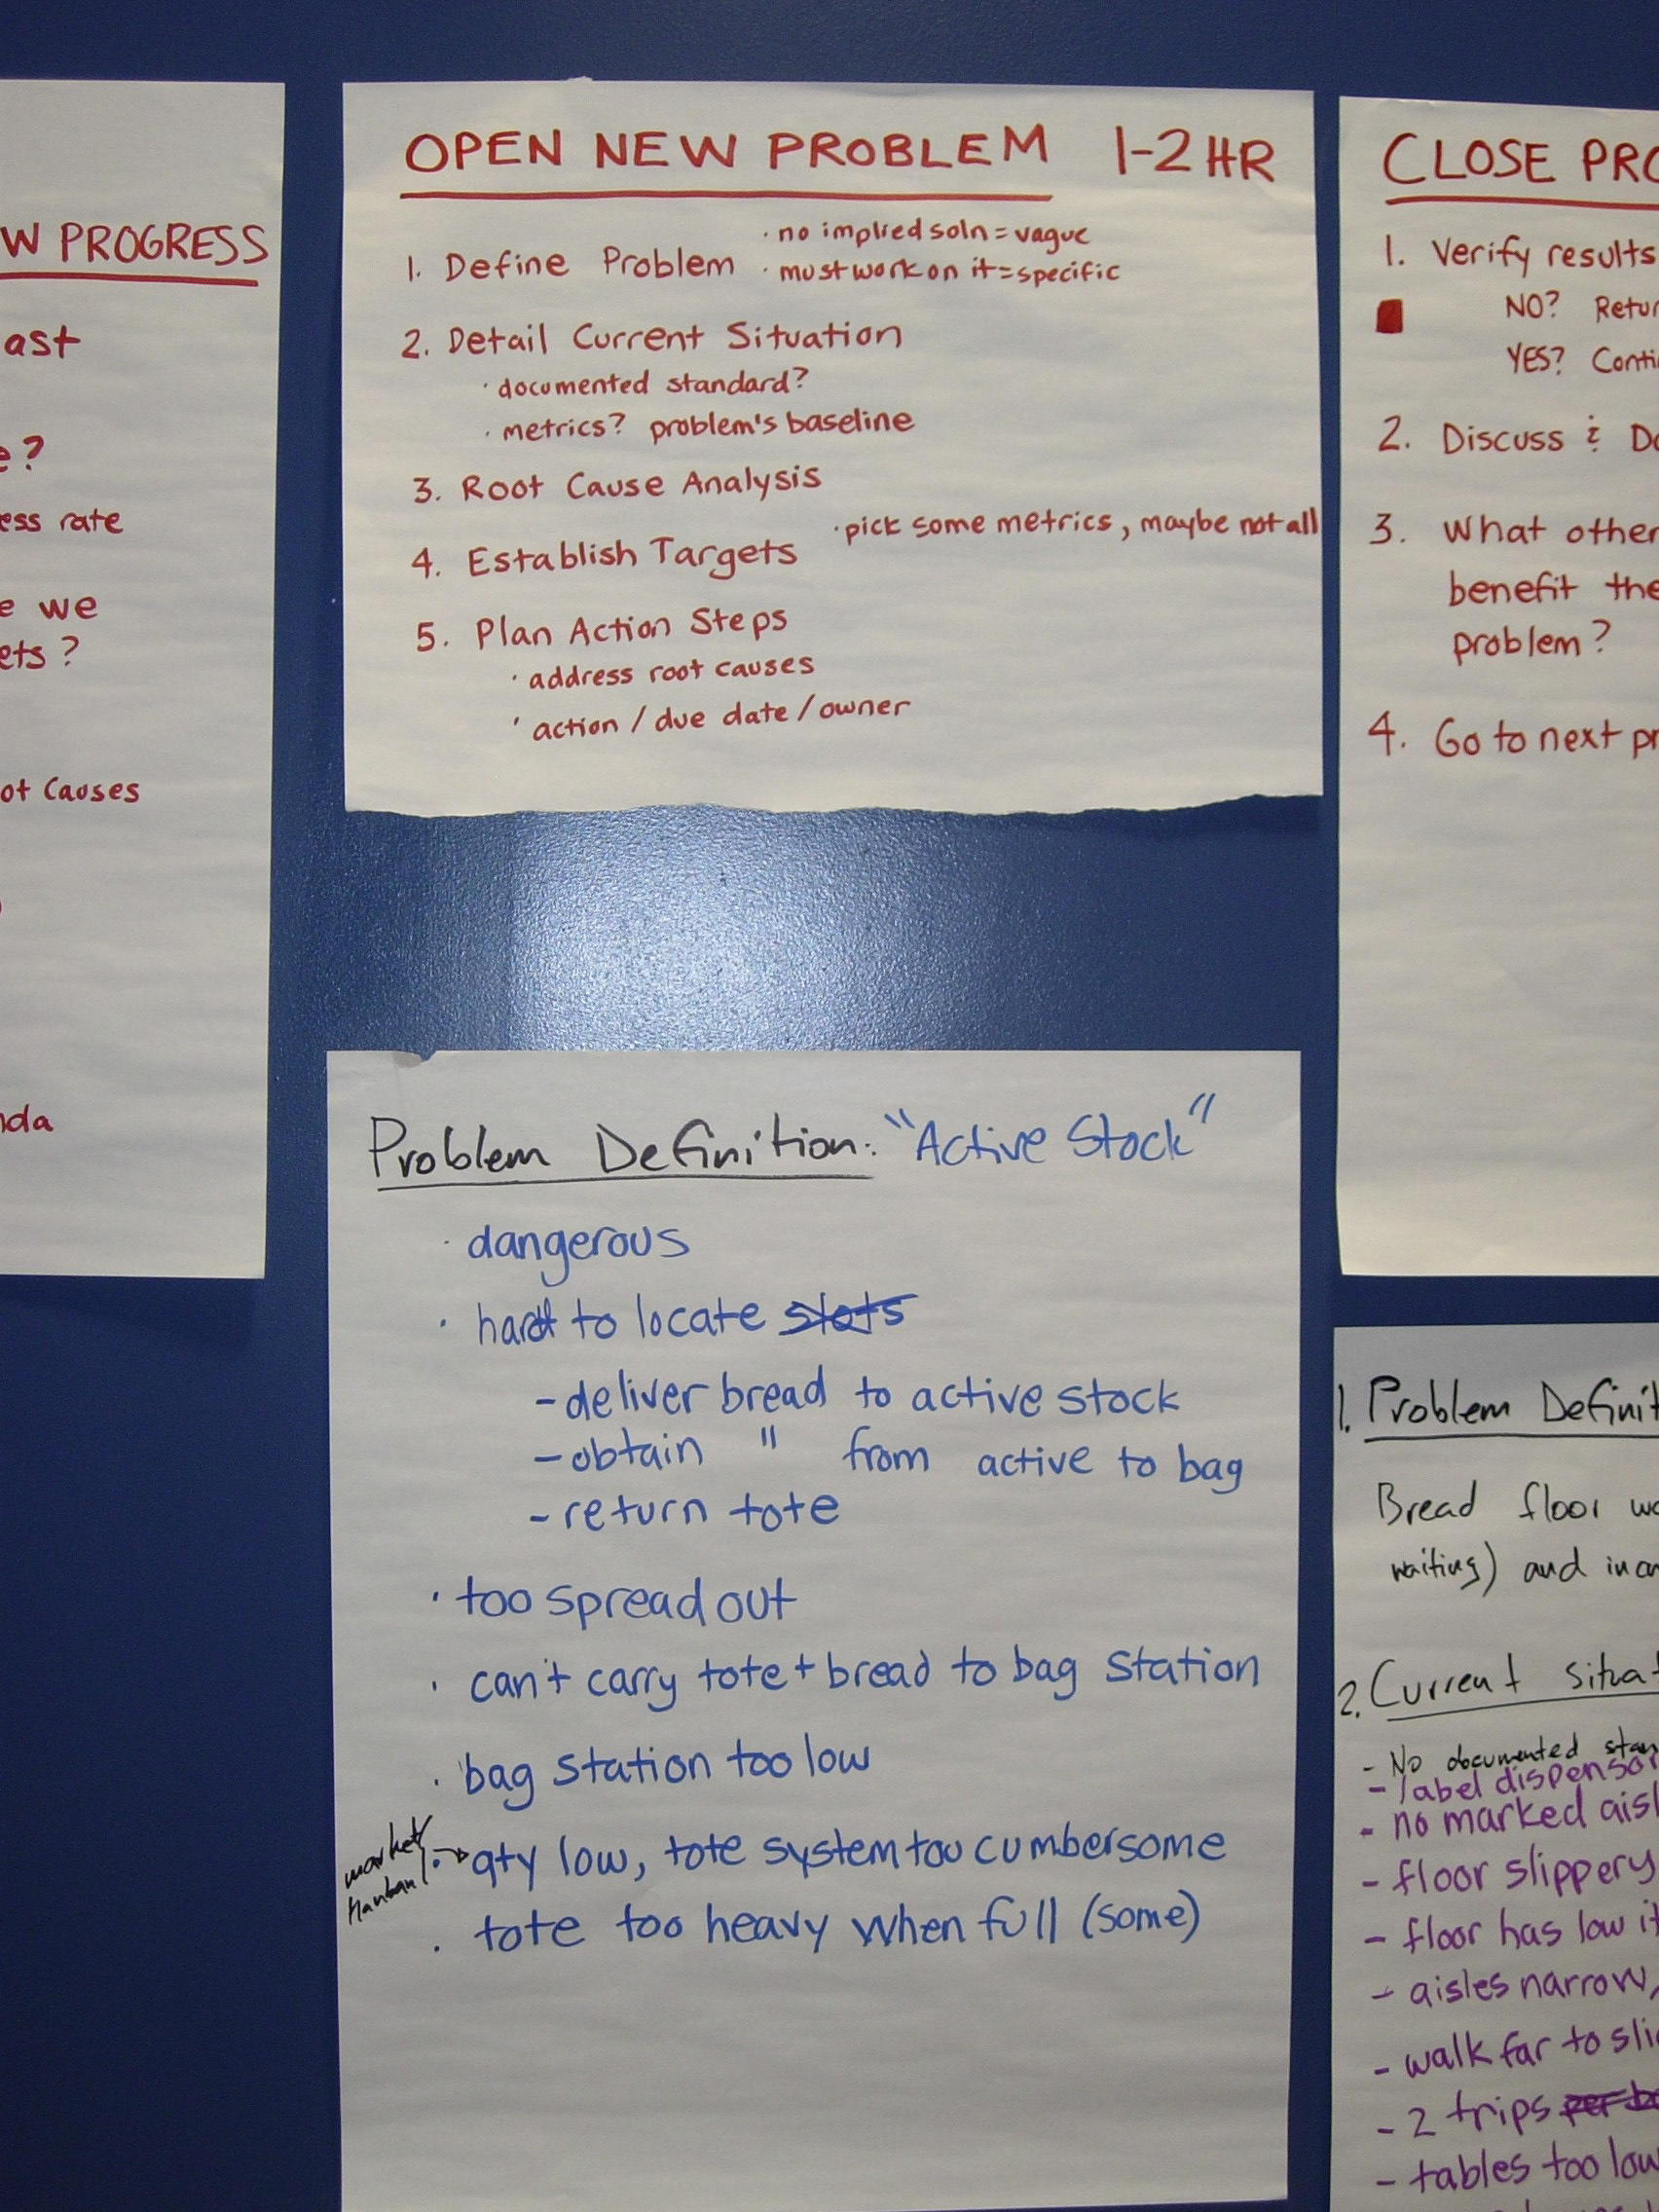 W PROGRESS
ast
e?
ess rate
e we
ets?
ot Causes
nda
OPEN NEW PROBLEM 1-2 HR
1. Define Problem
· no implied soln = vague
· must work on it = specific
2. Detail Current Situation
· documented standard?
· metrics? problem's baseline
3. Root Cause Analysis
4. Establish Targets
· pick some metrics, maybe not all
5. Plan Action Steps
· address root causes
· action / due date / owner
CLOSE PRO
1. Verify results
NO? Retur
YES? Conti
2. Discuss & Do
3. What other
benefit the
problem?
4. Go to next pr
Problem Definition: "Active Stock"
· dangerous
· hard to locate slots
- deliver bread to active stock
- obtain " from active to bag
- return tote
· too spread out
· can't carry tote + bread to bag station
· bag station too low
market
Kanban
· qty low, tote system too cumbersome
· tote too heavy when full (some)
1. Problem Definit
Bread floor wo
waiting) and
2. Current situat
- No documented stan
- label dispensor
- no marked aisl
- floor slippery
- floor has low it
- aisles narrow,
- walk far to slic
- 2 trips per
- tables too low